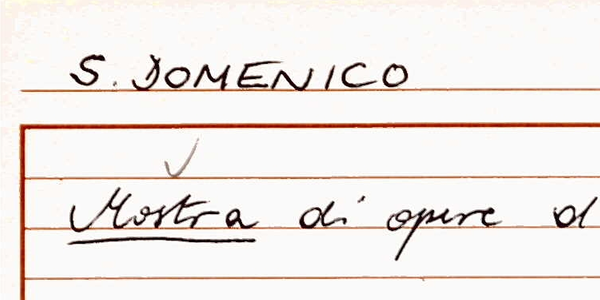 S. DOMENICO
Mostra di opere d